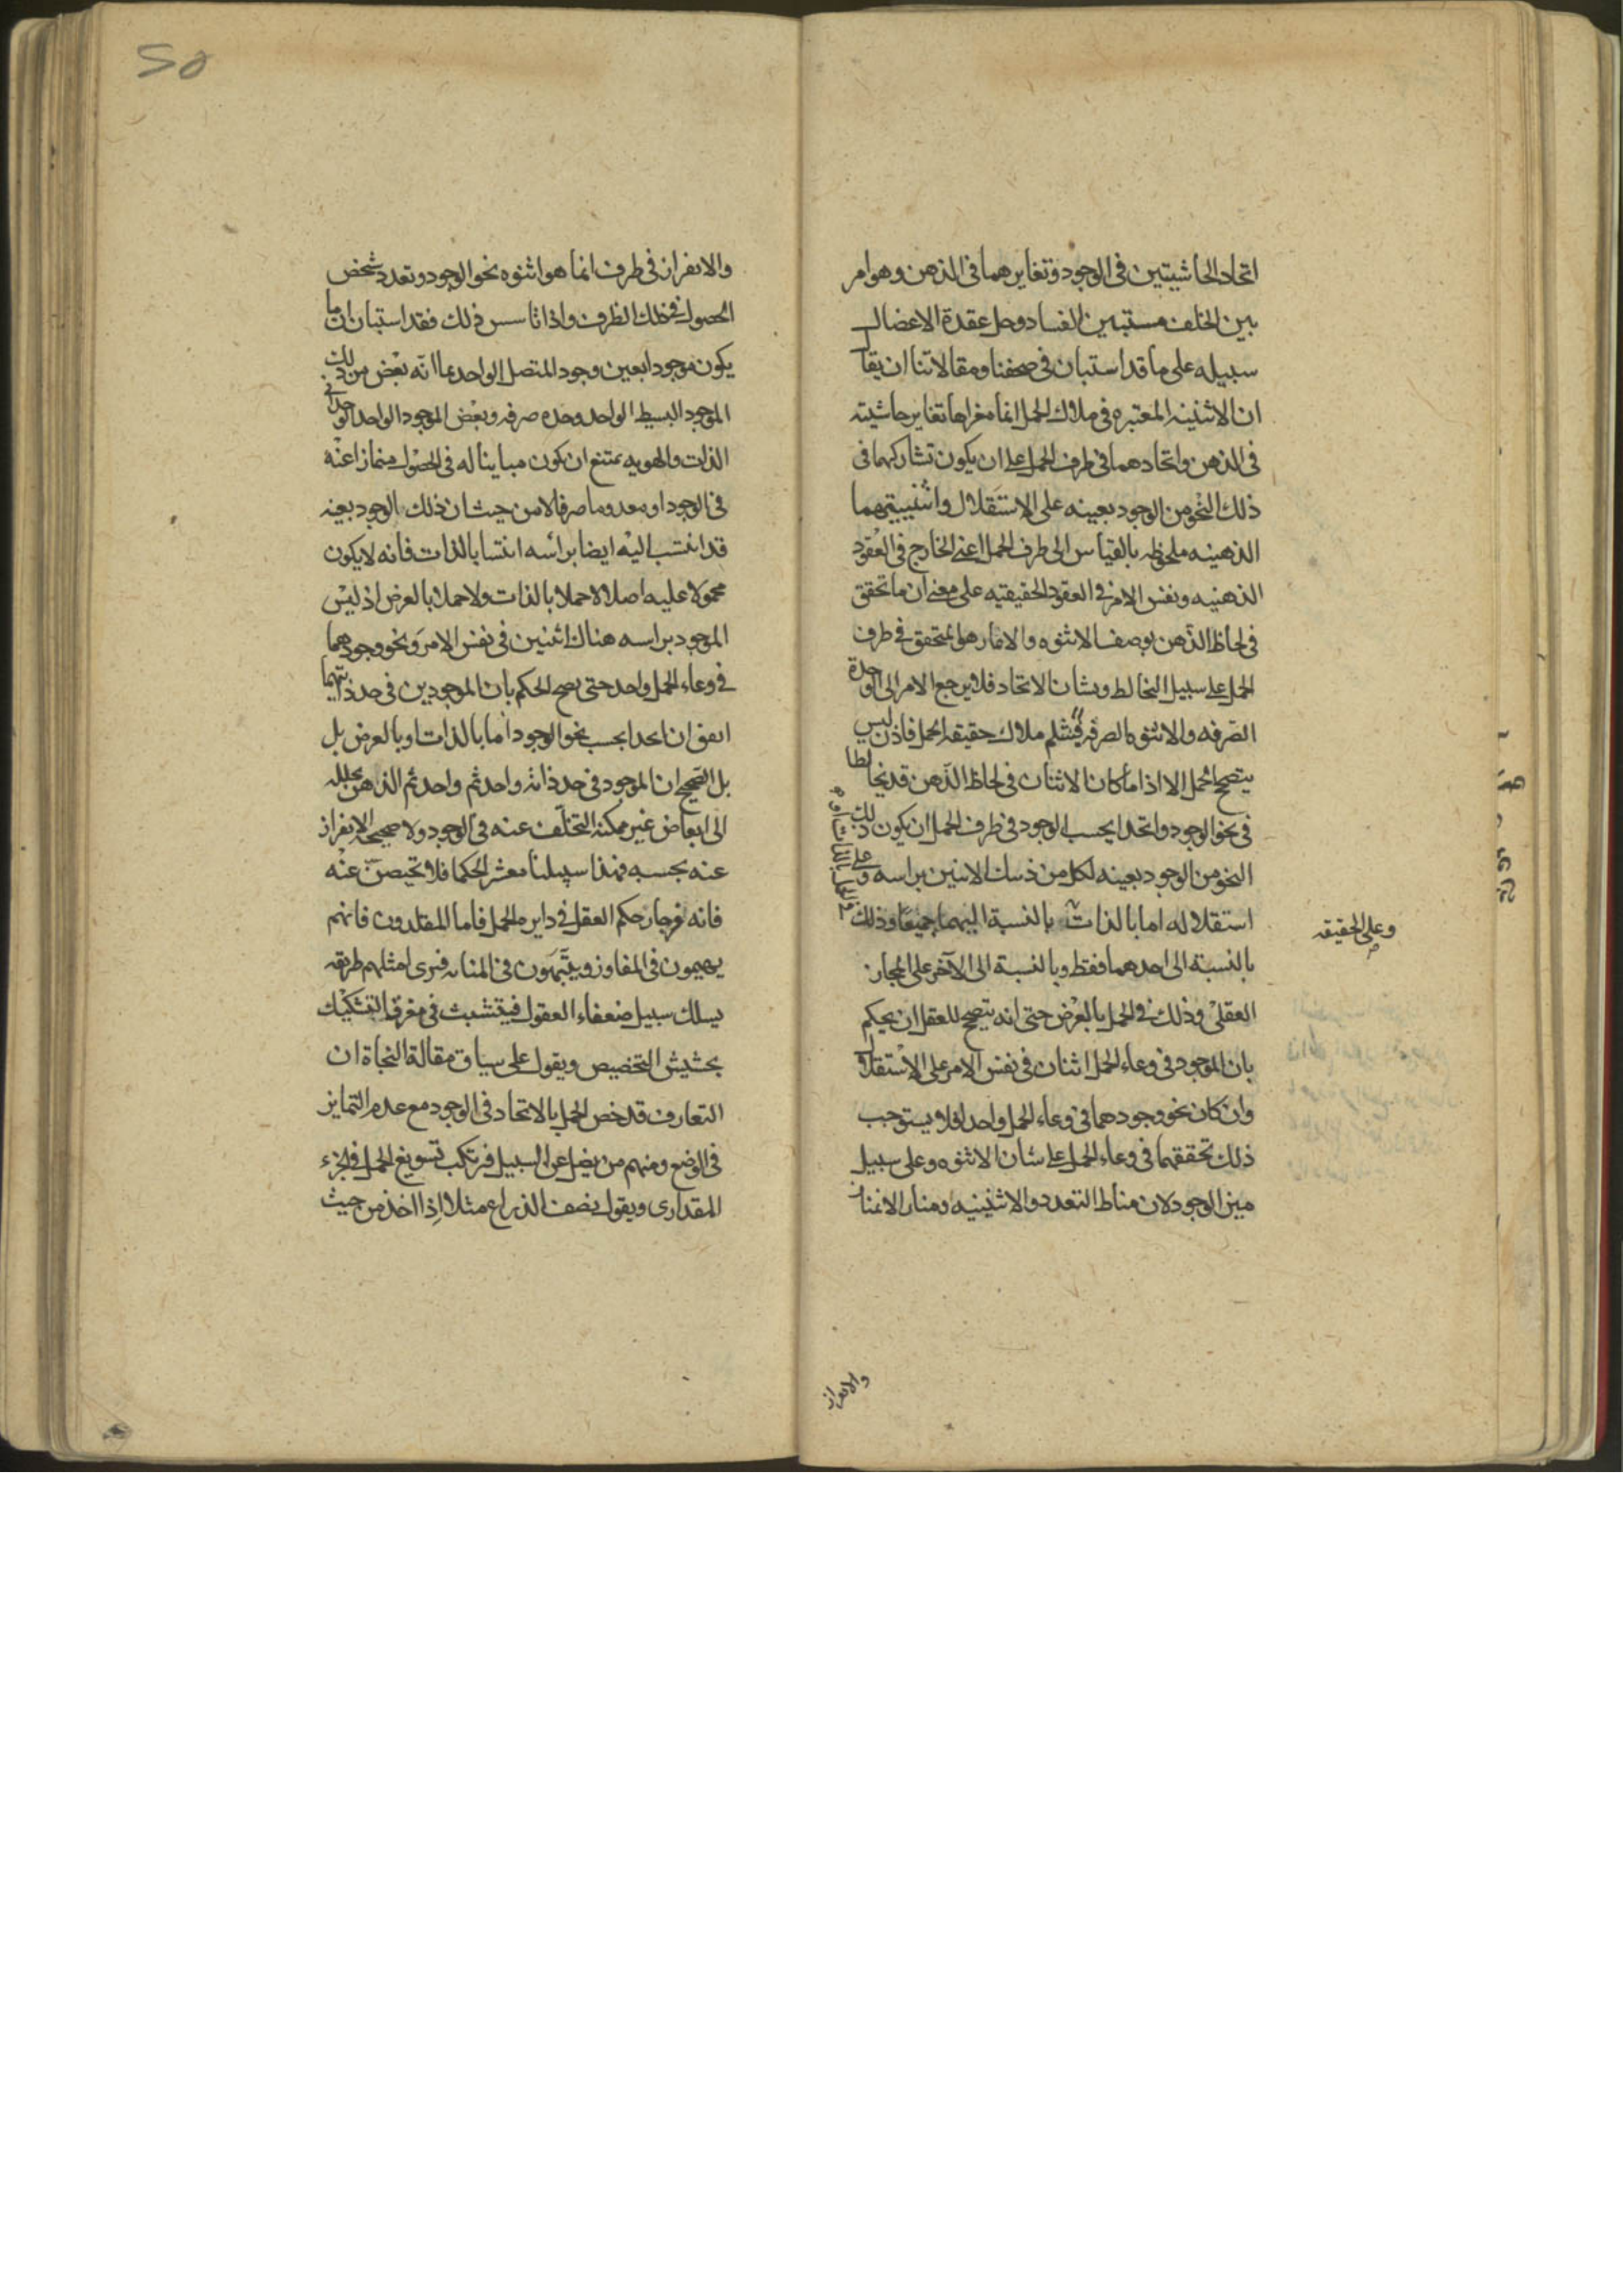 اتحاد الحاشيتين فى الوجود وتغايرهما فى الذهن وهو امر
بين الخلف مستبين الفساد وحل عقدة الاعضال
سبيله على ما قد استبان فى صحفنا ومقالاتنا ان يقال
ان الاثنينيه المعتبره فى ملاك الحمل انما مغزاها تغاير حاشيته
فى الذهن واتحادهما فى ظرف الحمل على ان يكون تشاركهما فى
ذلك النحو من الوجود بعينه على الاستقلال واثنينيتهما
الذهنيه ملحوظه بالقياس الى ظرف الحمل اعنى الخارج فى العقود
الذهنيه ونفس الامر فى العقود الحقيقيه على معنى ان ما تحقق
فى لحاظ الذهن بوصف الاثنوه والامتياز هو المتحقق فى ظرف
الحمل على سبيل التخالط وبشان الاتحاد فلا يرجع الامر الى الوحدة
الصرفه والاثنوه الصرفه فينثلم ملاك حقيقه الحمل فاذن ليس
يتصحح الحمل الا اذا ما كان الاثنان فى لحاظ الذهن قد تخالطا
فى نحو الوجود واتحدا بحسب الوجود فى ظرف الحمل ان يكون ذلك
النحو من الوجود بعينه لكل من ذينك الاثنين براسه وعلى
استقلاله اما بالذات بالنسبة اليهما جميعا وذلك
وعلى الحقيقه
بالنسبة الى احدهما فقط وبالنسبة الى الآخر على المجاز
العقلى وذلك فى الحمل بالعرض حتى انه يتصحح للعقل ان يحكم
بان الموجود فى وعاء الحمل اثنان فى نفس الامر على الاستقلال
وان كان نحو وجودهما فى وعاء الحمل واحدا فلا يستوجب
ذلك تحققهما فى وعاء الحمل على شان الاثنوه وعلى سبيل
ميز الوجود لان مناط التعدد والاثنينيه ومنار الامتياز
والانفراز
والانفراز فى ظرف انما هو اثنوه نحو الوجود وتعدد شخص
الحصول فى ذلك الظرف واذا تاسس ذلك فقد استبان ان ما
يكون موجودا بعين وجود المتصل الواحد بما انه بعض من ذلك
الموجود البسيط الواحد وحده صرفه وبعض الموجود الواحد الوحدانى
الذات والهويه يمتنع ان يكون مباينا له فى الحصول منمازا عنه
فى الوجود او معدوما صرفا لا من حيث ان ذلك الوجود بعينه
قد انتسب اليه ايضا براسه انتسابا بالذات فانه لا يكون
محمولا عليه اصلا لا حملا بالذات ولا حملا بالعرض اذ ليس
الموجود براسه هناك اثنين فى نفس الامر ونحو وجودهما
فى وعاء الحمل واحد حتى يصح الحكم بان الموجودين فى حد ذاتيهما
اتفق ان اتحدا بحسب نحو الوجود اما بالذات او بالعرض بل
بل الصحيح ان الموجود فى حد ذاته واحد ثم واحد ثم الذهن يحلله
الى ابعاض غير ممكنة التخلف عنه فى الوجود ولا صحيحة الانفراز
عنه بحسبه فهذا سبيلنا معشر الحكما فلا تحيصن عنه
فانه فرجار حكم العقل فى دايره الحمل فاما المقلدون فانهم
يهيمون فى المفاوز ويتيهون فى المتاه فترى امثلهم طريقه
يسلك سبيل ضعفاء العقول فيتشبث فى مغرق التشكيك
بحشيش التخصيص ويقول على سياق مقالة النجاة ان
التعارف قد خص الحمل بالاتحاد فى الوجود مع عدم التمايز
فى الوضع ومنهم من يضل عن السبيل فيرتكب تسويغ الحمل فى الجزء
المقدارى ويقول نصف الذراع مثلا اذا اخذ من حيث